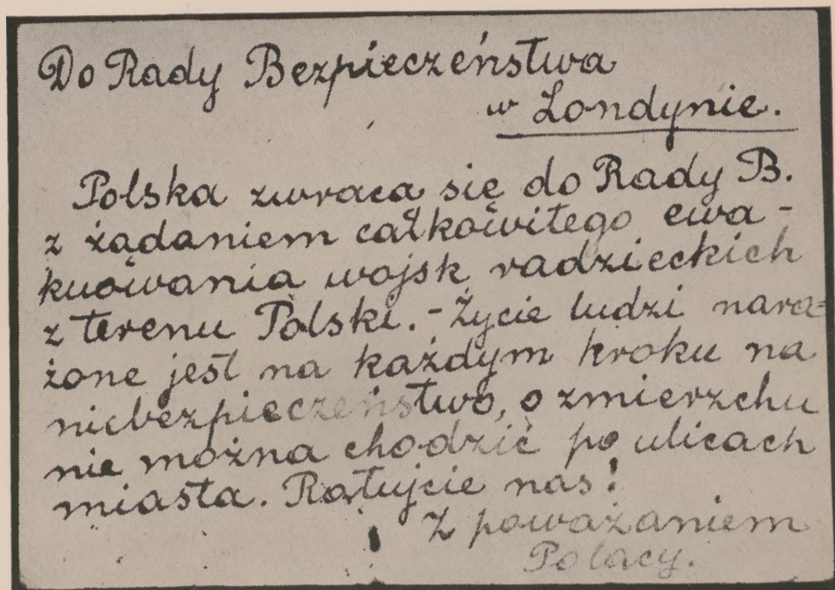 Do Rady Bezpieczeństwa
w Londynie.
Polska zwraca się do Rady B.
z żądaniem całkowitego ewa-
kuowania wojsk radzieckich
z terenu Polski. - Życie ludzi nara=
żone jest na każdym kroku na
niebezpieczeństwo, o zmierzchu
nie można chodzić po ulicach
miasta. Ratujcie nas!
Z poważaniem
Polacy.